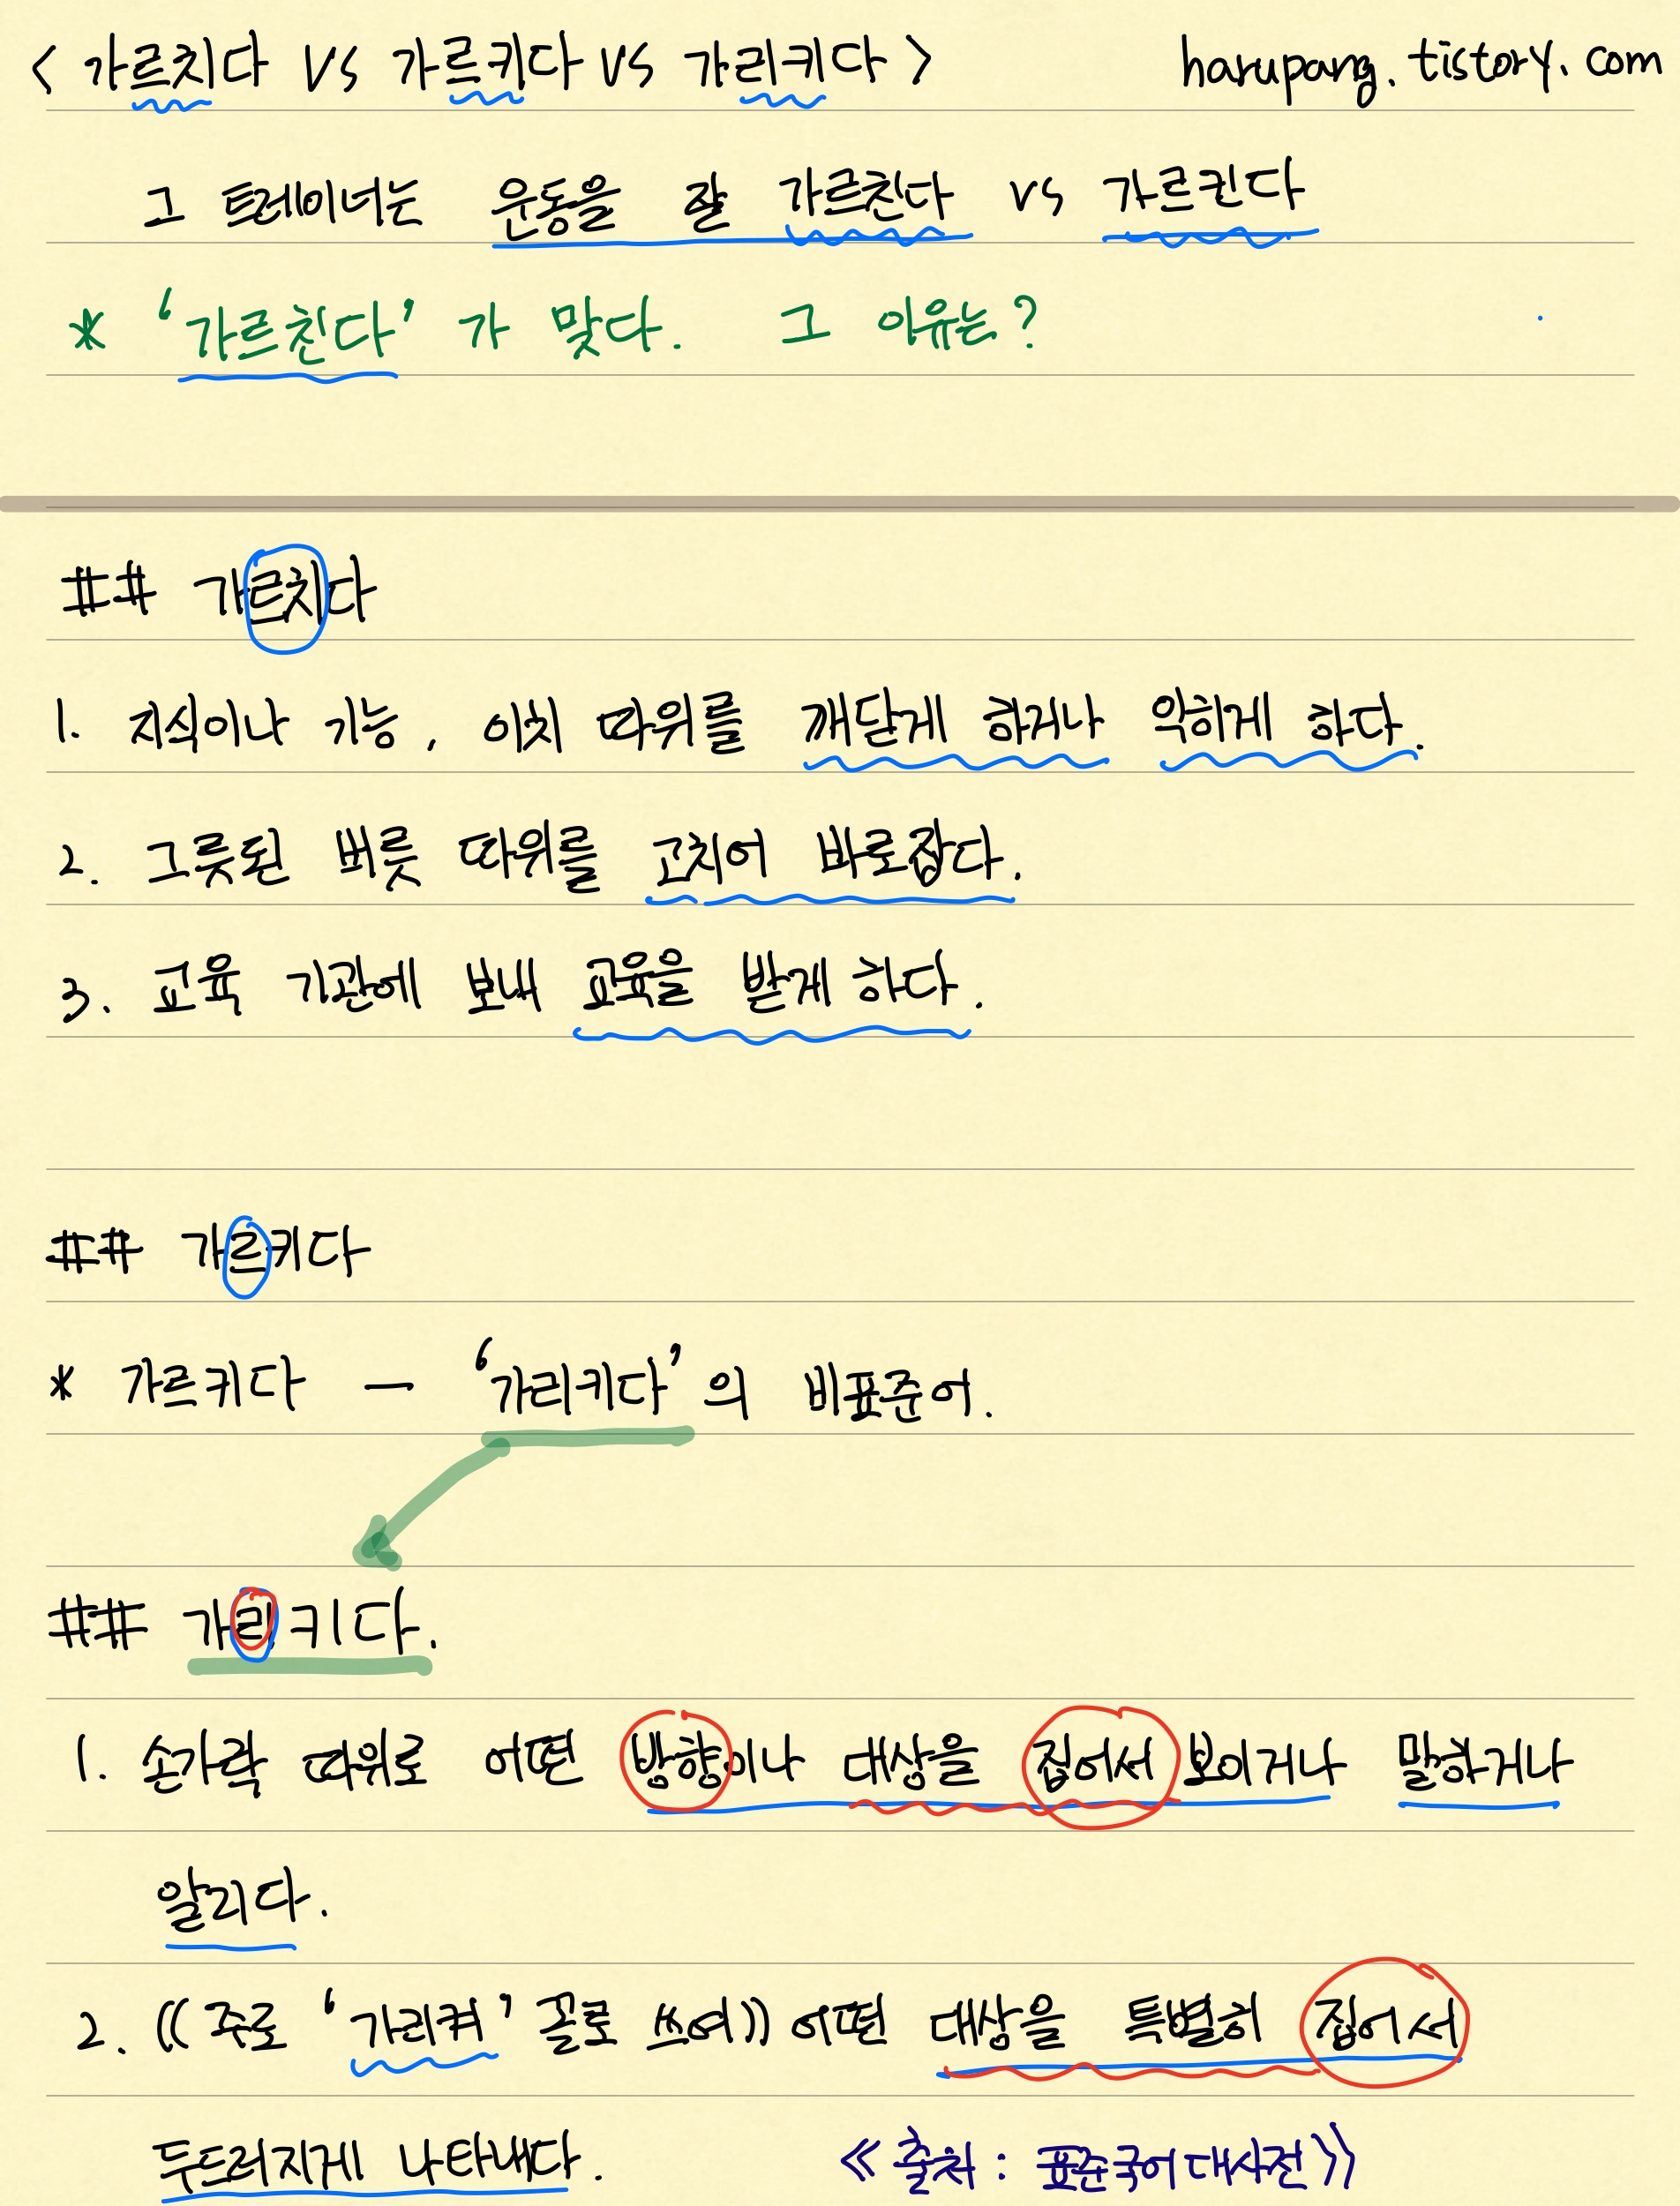 < 가르치다 VS 가르키다 VS 가리키다 > harupang.tistory.com
그 트레이너는 운동을 잘 가르친다 vs 가르킨다
* '가르친다' 가 맞다. 그 이유는?
## 가르치다
1. 지식이나 기능, 이치 따위를 깨닫게 하거나 익히게 하다.
2. 그릇된 버릇 따위를 고치어 바로잡다.
3. 교육 기관에 보내 교육을 받게 하다.
## 가르키다
* 가르키다 — '가리키다'의 비표준어.
## 가리키다.
1. 손가락 따위로 어떤 방향이나 대상을 집어서 보이거나 말하거나
알리다.
2. ((주로 '가리켜' 꼴로 쓰여)) 어떤 대상을 특별히 집어서
두드러지게 나타내다. 《출처 : 표준국어대사전》